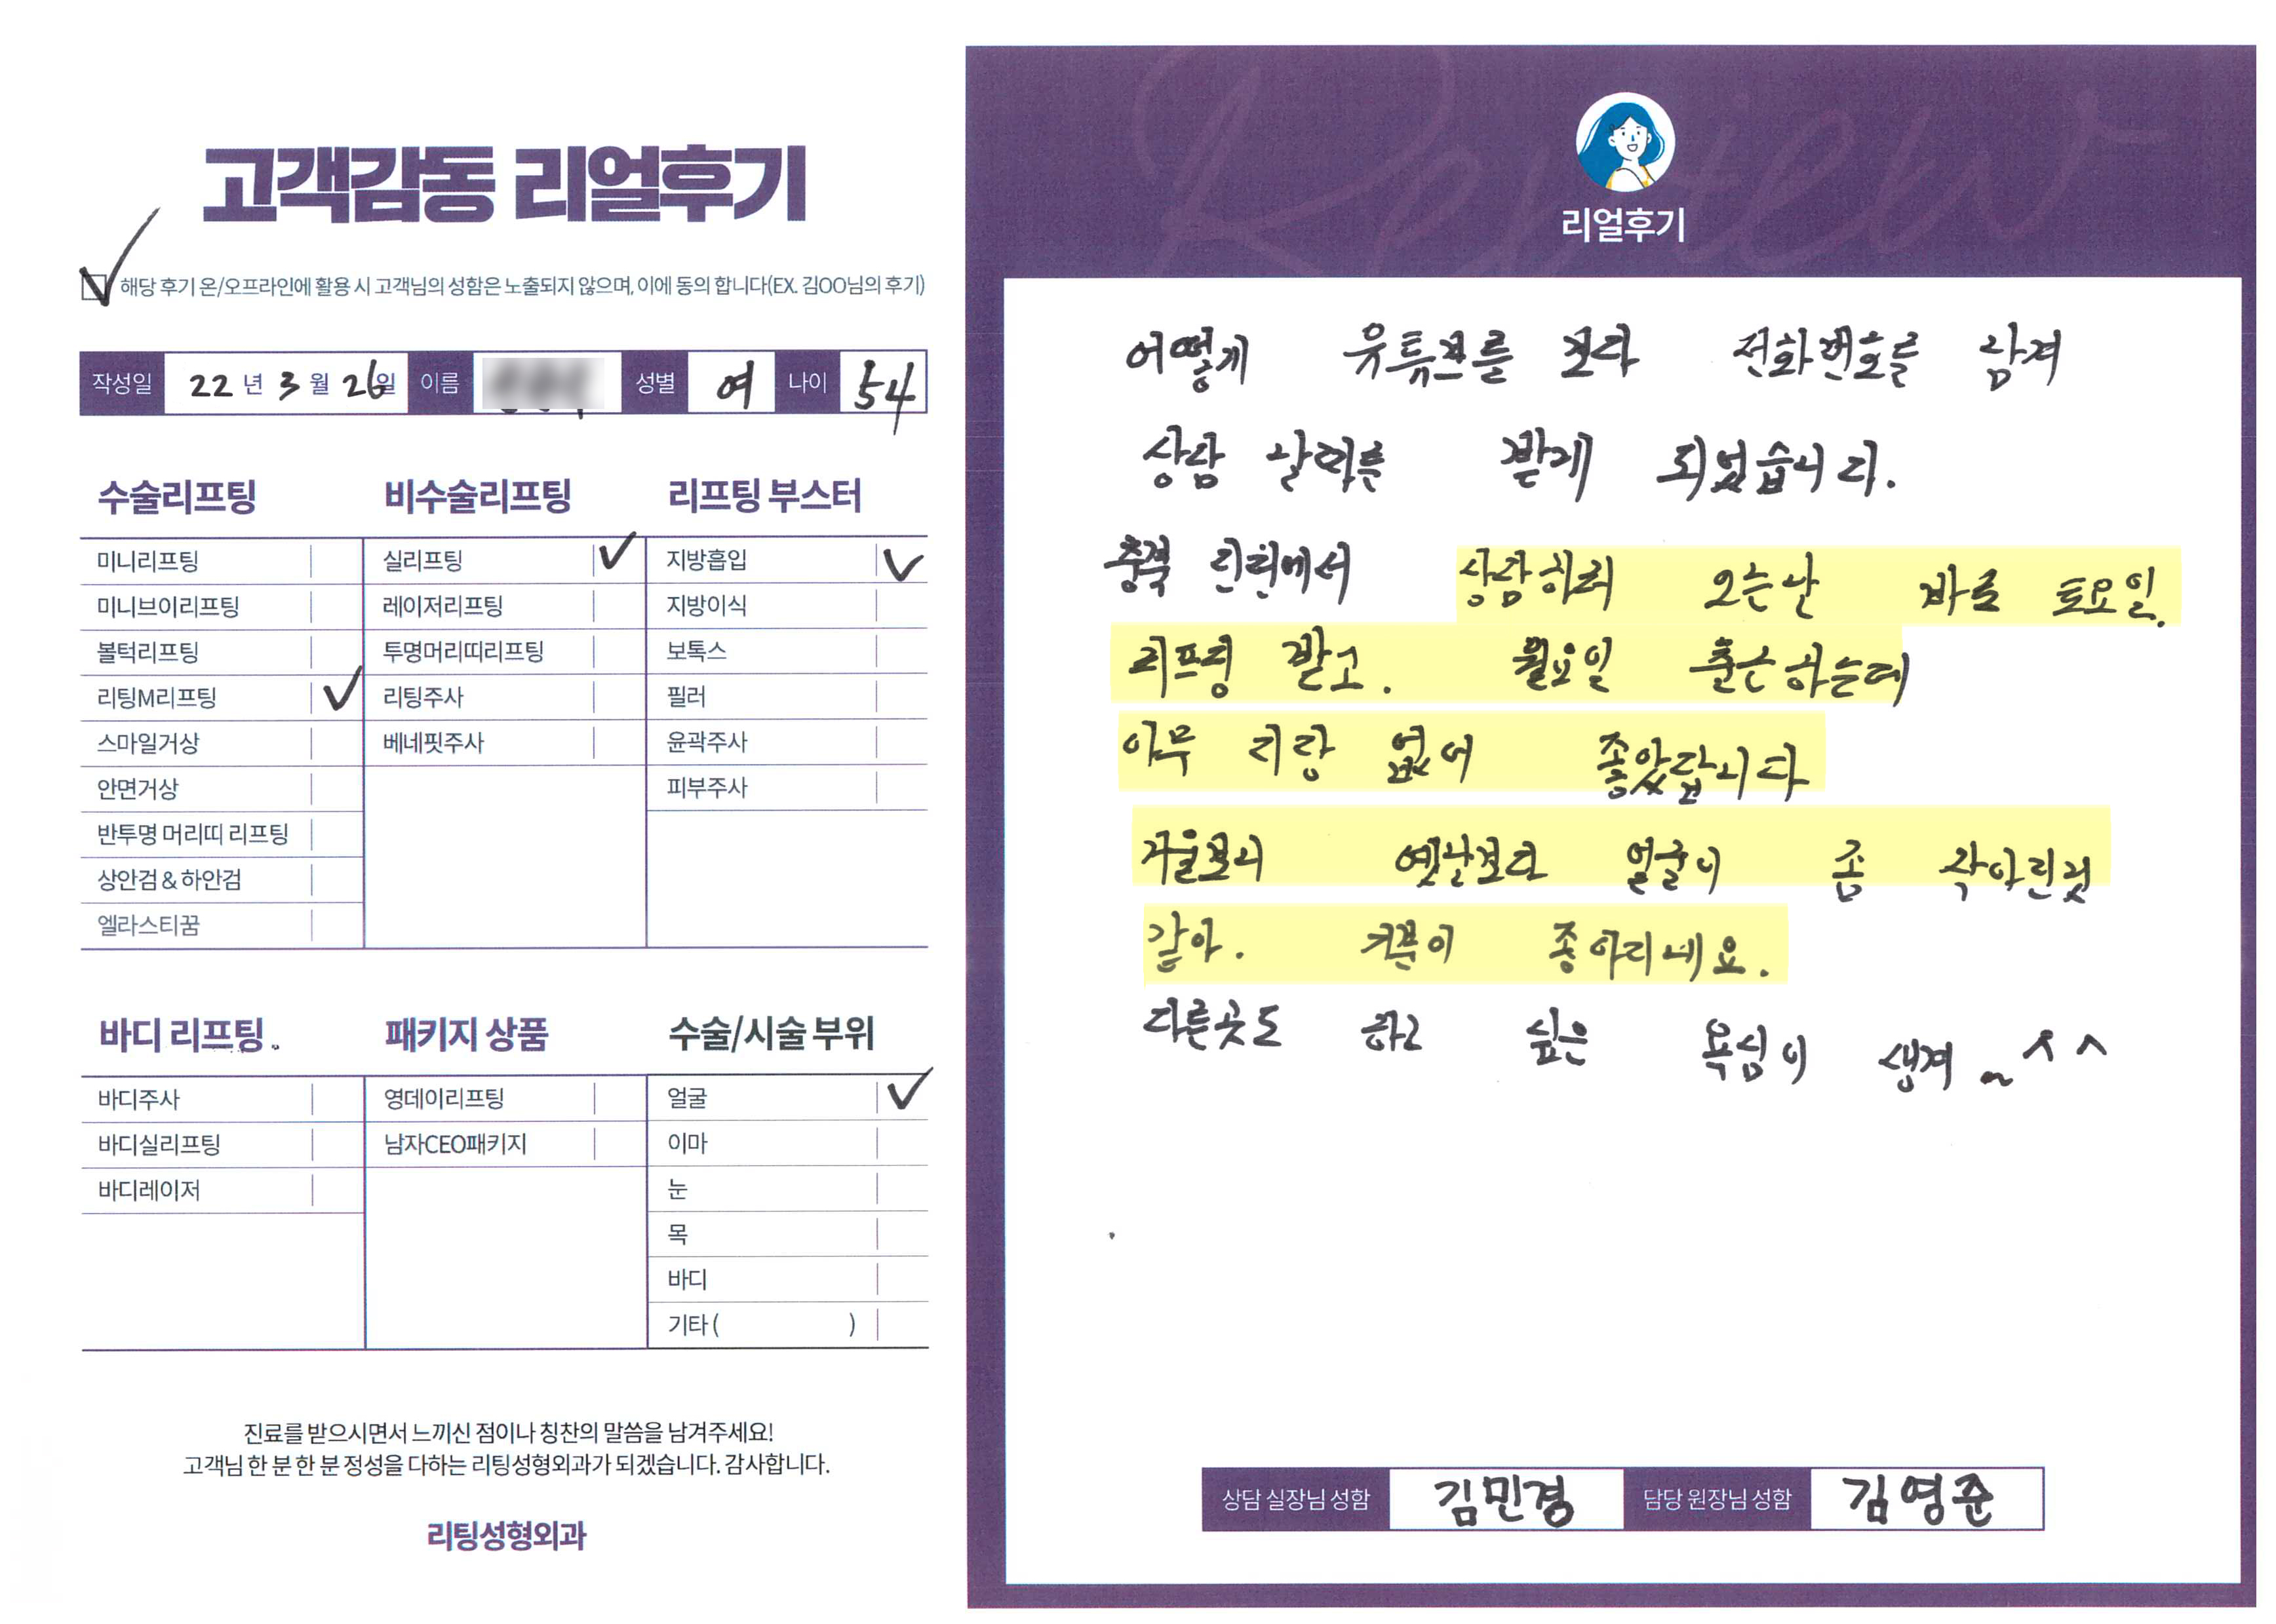 고객감동 리얼후기
해당 후기 온/오프라인에 활용 시 고객님의 성함은 노출되지 않으며, 이에 동의 합니다(EX. 김OO님의 후기)
작성일 22년 3월 26일 이름 성별 여 나이 54
수술리프팅
미니리프팅
미니브이리프팅
볼턱리프팅
리팅M리프팅
스마일거상
안면거상
반투명 머리띠 리프팅
상안검 & 하안검
엘라스티꿈
비수술리프팅
실리프팅
레이저리프팅
투명머리띠리프팅
리팅주사
베네핏주사
리프팅 부스터
지방흡입
지방이식
보톡스
필러
윤곽주사
피부주사
바디 리프팅
바디주사
바디실리프팅
바디레이저
패키지 상품
영데이리프팅
남자CEO패키지
수술/시술 부위
얼굴
이마
눈
목
바디
기타 ( )
진료를 받으시면서 느끼신 점이나 칭찬의 말씀을 남겨주세요!
고객님 한 분 한 분 정성을 다하는 리팅성형외과가 되겠습니다. 감사합니다.
리팅성형외과
Review
리얼후기
어떻게 유튜브를 보다 전화번호를 남겨
상담 받게 되었습니다.
충북 에서 상담하러 오는날 바로 토요일.
리프팅 받고. 월요일 출근하는데
아무 지장 없어 좋았답니다
거울보니 옛날보다 얼굴이 좀 작아진것
같아. 기분이 좋아지네요.
다른곳도 하고 싶은 욕심이 생겨~ ^^
상담 실장님 성함 김민경 담당 원장님 성함 김영준